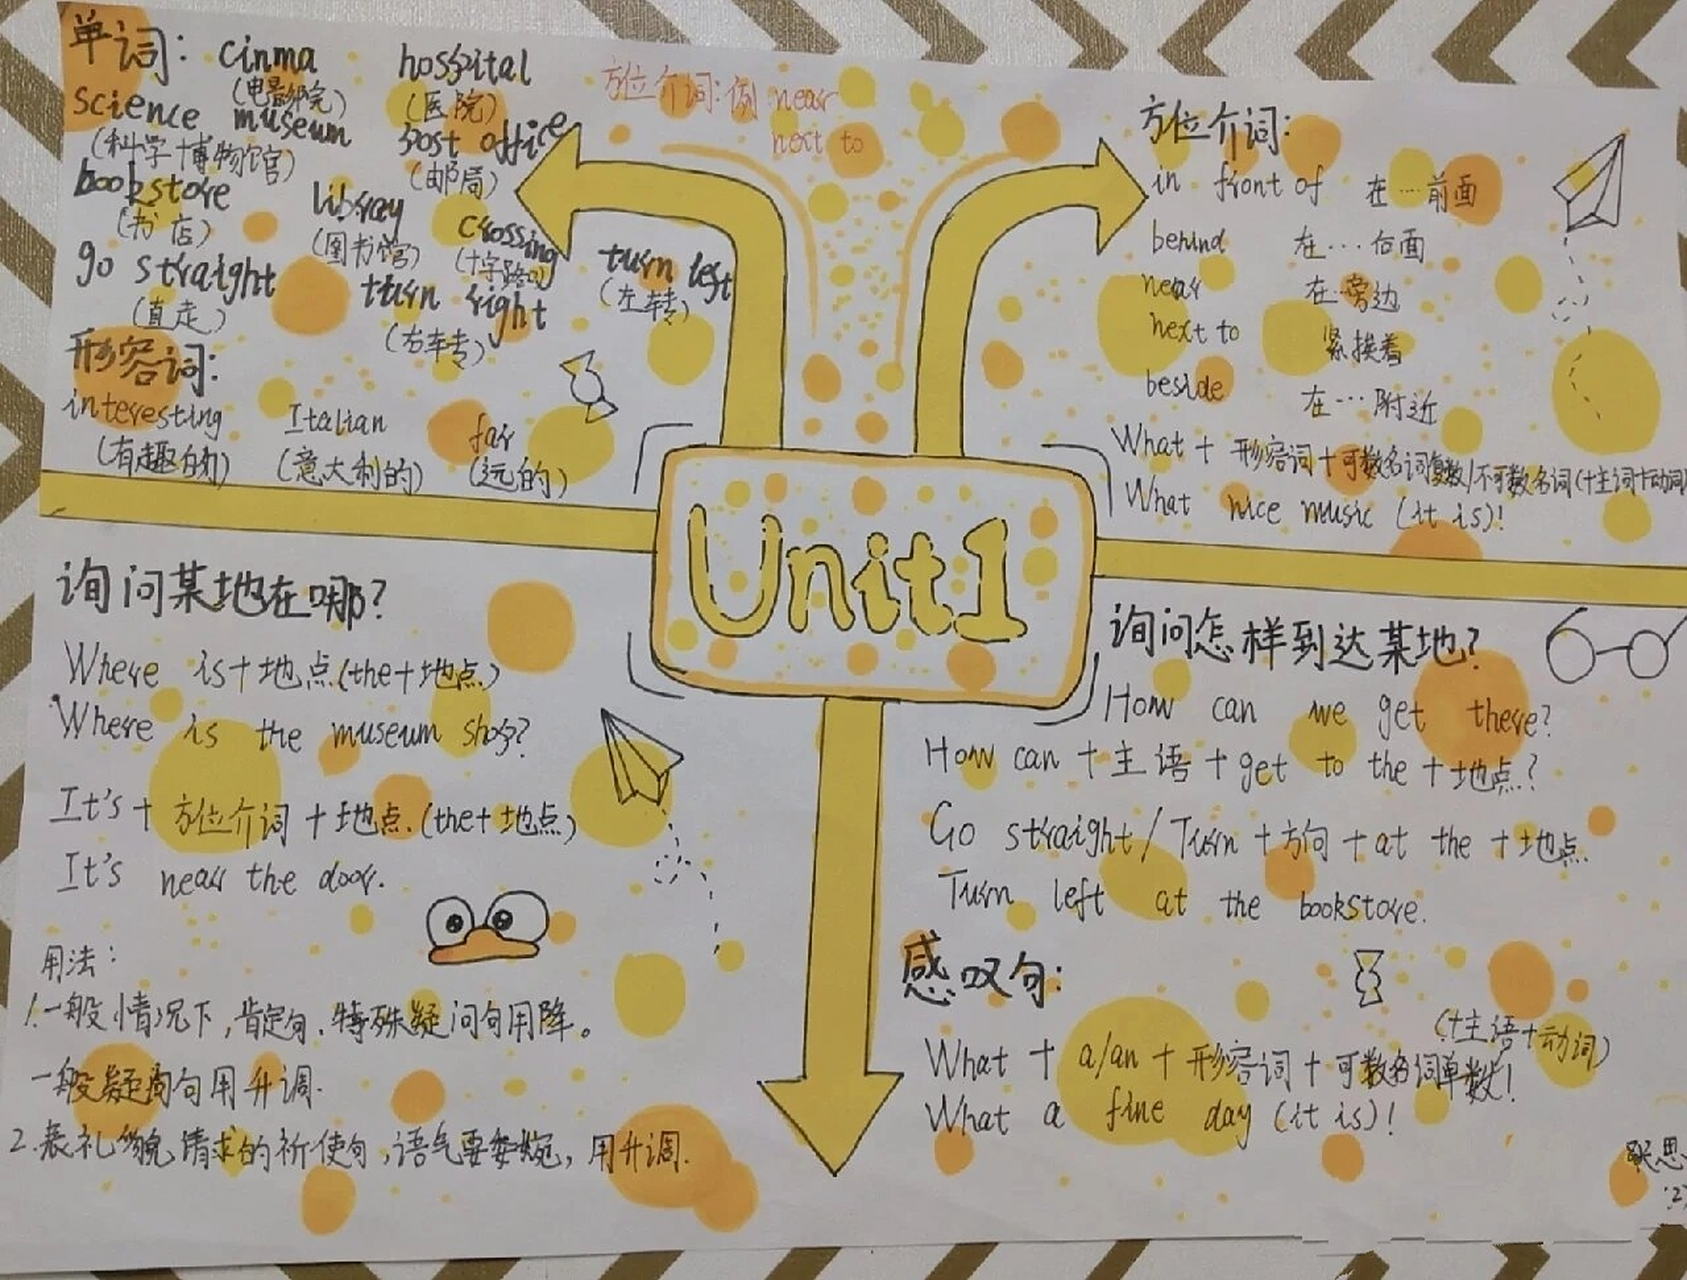 单词: cinma hospital
(电影院) (医院)
science museum post office
(科学博物馆) (邮局)
bookstore library crossing
(书店) (图书馆) (十字路口)
go straight turn right turn left
(直走) (右转) (左转)
形容词:
interesting Italian far
(有趣的) (意大利的) (远的)
方位介词:例 near
next to
方位介词:
in front of 在…前面
behind 在…后面
near 在…旁边
next to 紧挨着
beside 在…附近
What + 形容词+可数名词复数/不可数名词(+主词+动词
What nice music (it is)!
Unit1
询问某地在哪?
Where is+地点(the+地点)
Where is the museum shop?
It's+方位介词+地点.(the+地点)
It's near the door.
用法:
1.一般情况下,肯定句、特殊疑问句用降。
一般疑问句用升调.
2.表礼貌请求的祈使句,语气要委婉,用升调.
询问怎样到达某地?
How can we get there?
How can +主语+get to the +地点?
Go straight/Turn +方向+at the +地点.
Turn left at the bookstore.
感叹句:
(+主语+动词)
What + a/an + 形容词+可数名词单数!
What a fine day (it is)!